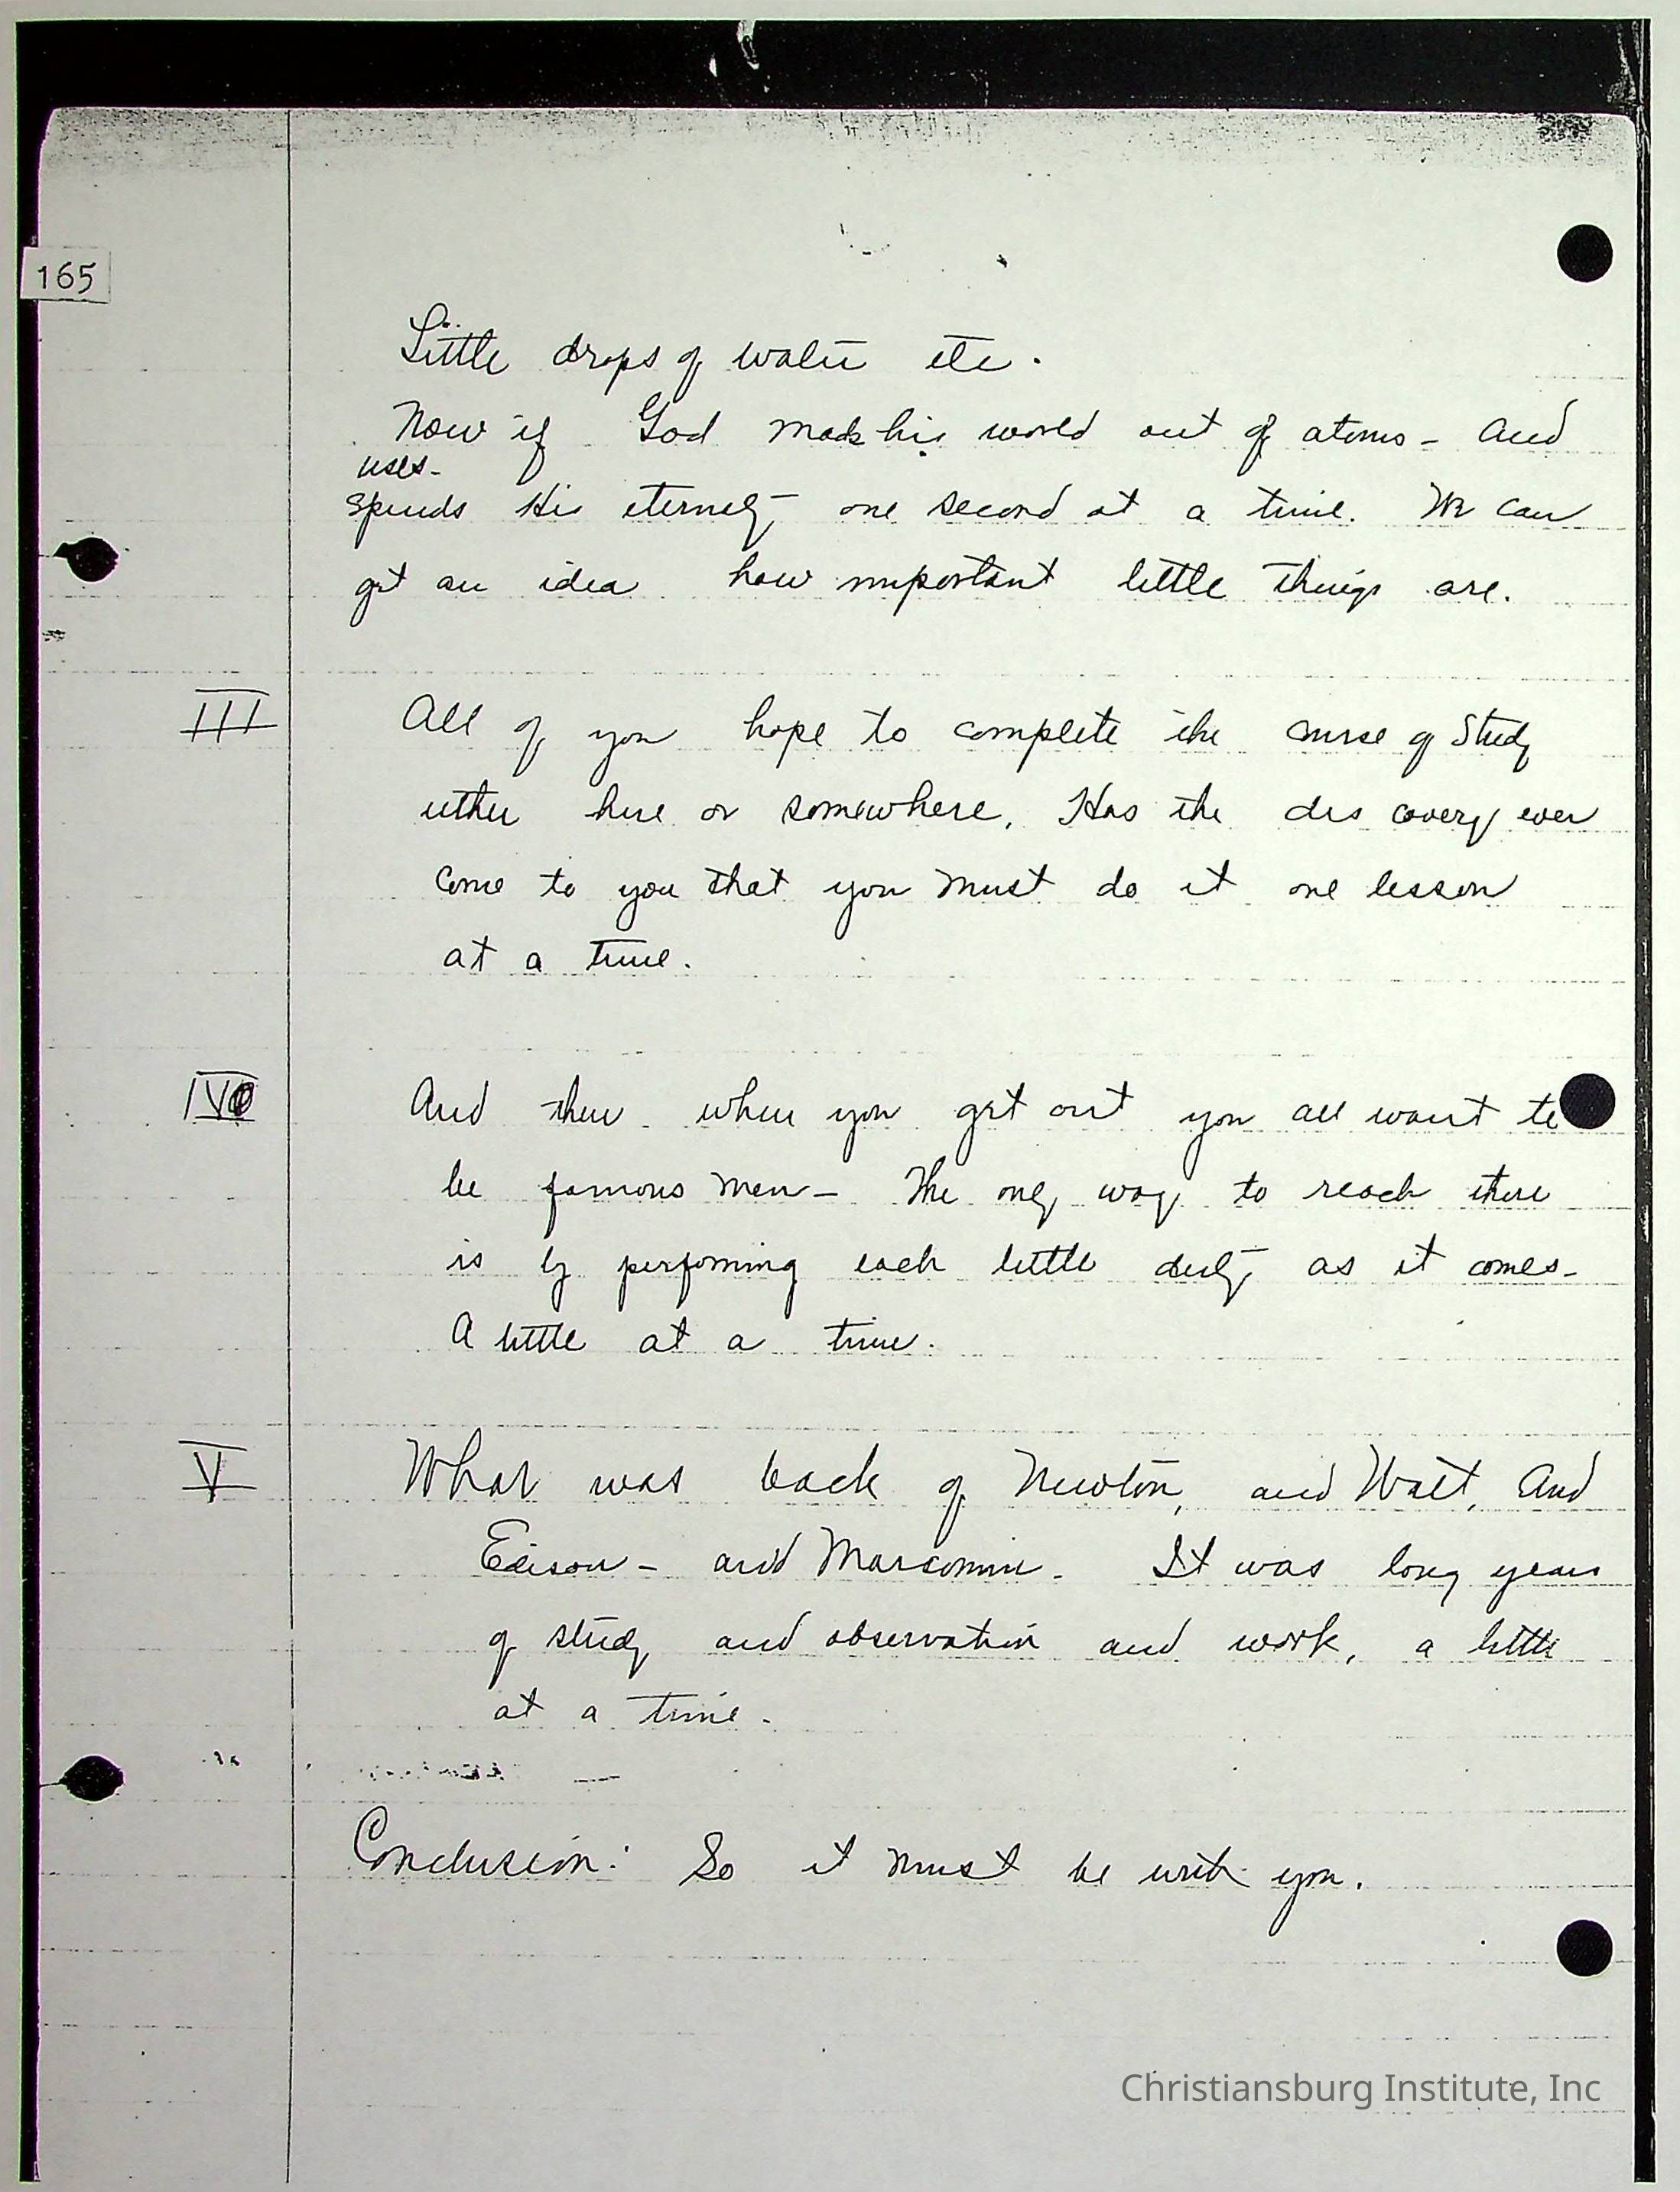 165
Little drops of water etc.
Now if God made his world out of atoms - And
uses -
spends His eternity one second at a time. We can
get an idea how important little things are.
III All of you hope to complete the course of Study
either here or somewhere. Has the dis covery ever
come to you that you must do it one lesson
at a time.
IV And then when you get out you all want to
be famous men - The only way to reach there
is by performing each little duty as it comes -
A little at a time.
V What was back of Newton, and Watt, And
Edison - and Marconni. It was long years
of study and observation and work, a little
at a time.
Conclusion: So it must be with you.
Christiansburg Institute, Inc